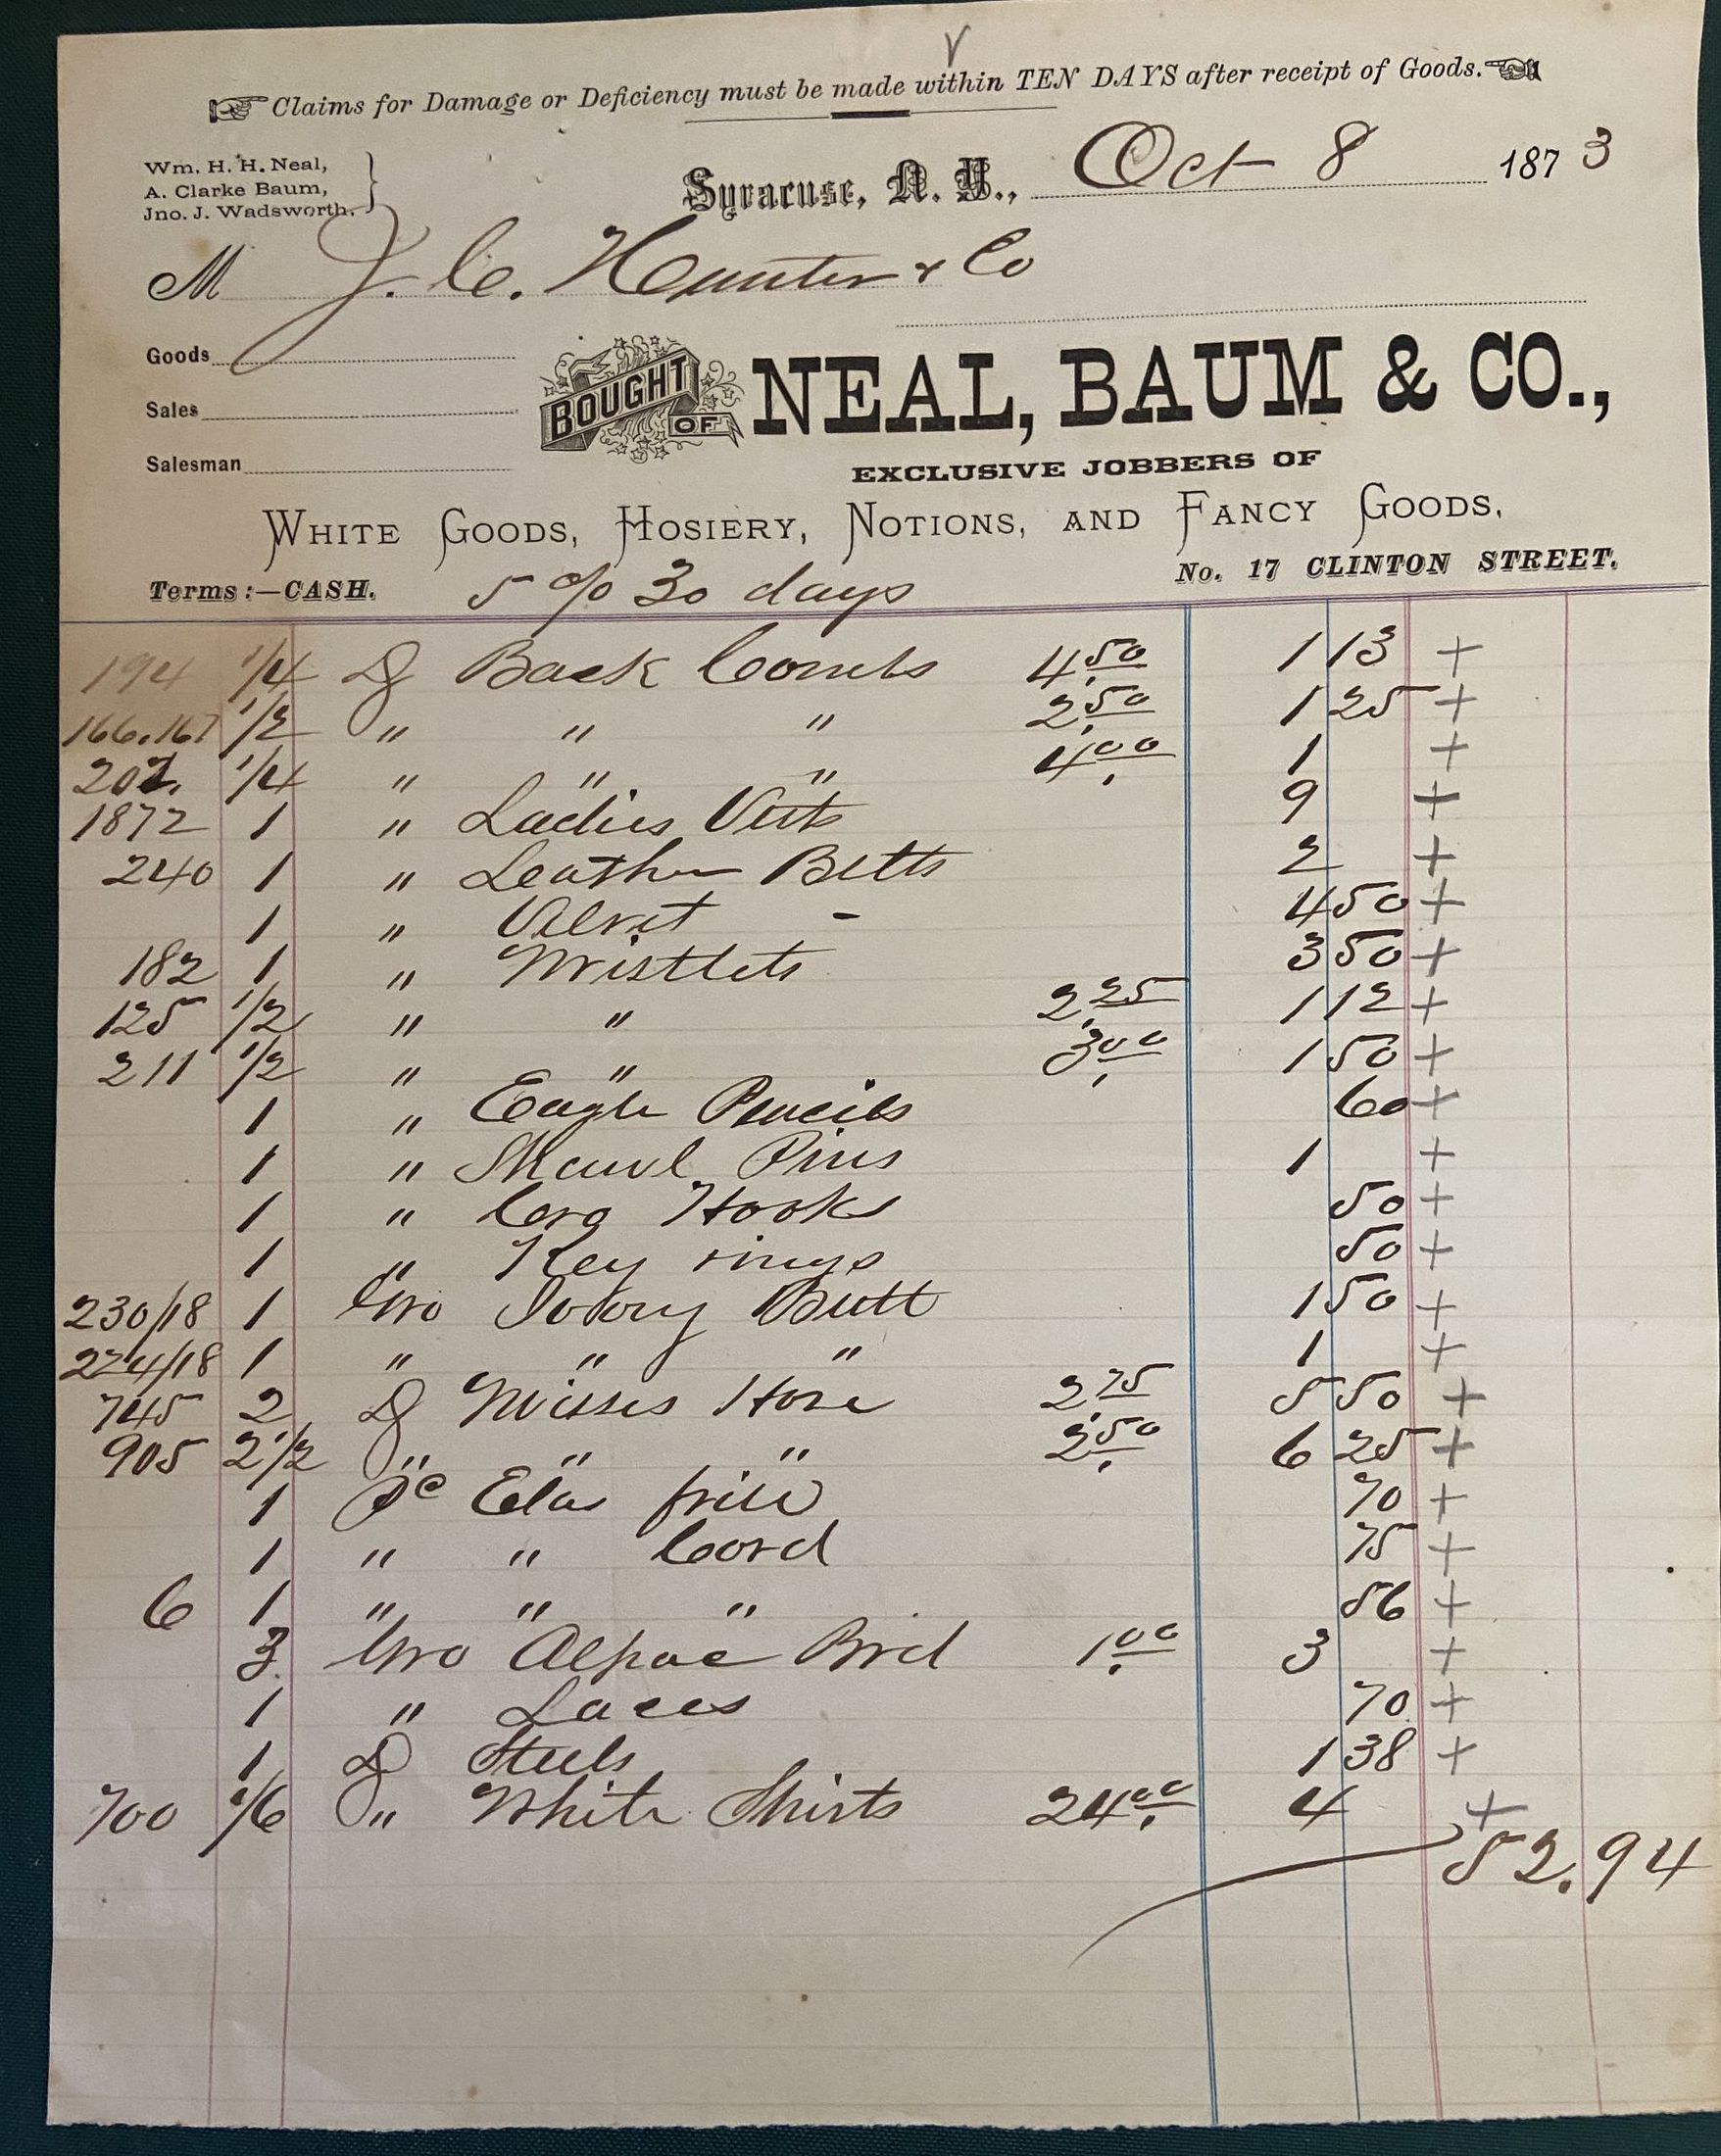 Claims for Damage or Deficiency must be made within TEN DAYS after receipt of Goods.
Wm. H. H. Neal,
A. Clarke Baum,
Jno. J. Wadsworth.
Syracuse, N. Y., Oct 8 1873
M J. C. Hunter & Co
Goods
Sales
Salesman
BOUGHT OF NEAL, BAUM & CO.,
EXCLUSIVE JOBBERS OF
WHITE GOODS, HOSIERY, NOTIONS, AND FANCY GOODS,
No. 17 CLINTON STREET.
Terms:—CASH. 5 % 30 days
194 1/4 D Back Combs 4.50 1 13 +
166.167 1/2 " " " 2.50 1 25 +
202. 1/4 " " " 4.00 1 +
1872 1 " Ladies Vests 9 +
240 1 " Leather Belts 2 +
1 " Velvet - 4 50 +
182 1 " Wristlets 3 50 +
125 1/2 " " 2.25 1 12 +
211 1/2 " " 3.00 1 50 +
1 " Eagle Pencils 60 +
1 " Shawl Pins 1 +
1 " Hooks 50 +
1 " Key rings 50 +
230/18 1 Gro Ivory Butt 1 50 +
224/18 1 " " " 1 +
745 2 D Misses Hose 2.75 5 50 +
905 2 1/2 " " " 2.50 6 25 +
1 Pc Elas frill 70 +
1 " " Cord 75 +
6 1 " " " 56 +
3 Gro Alpac Brd 1.00 3 +
1 " Laces 70 +
1 D Steels 1 38 +
700 1/6 " White Shirts 24.00 4 +
52.94